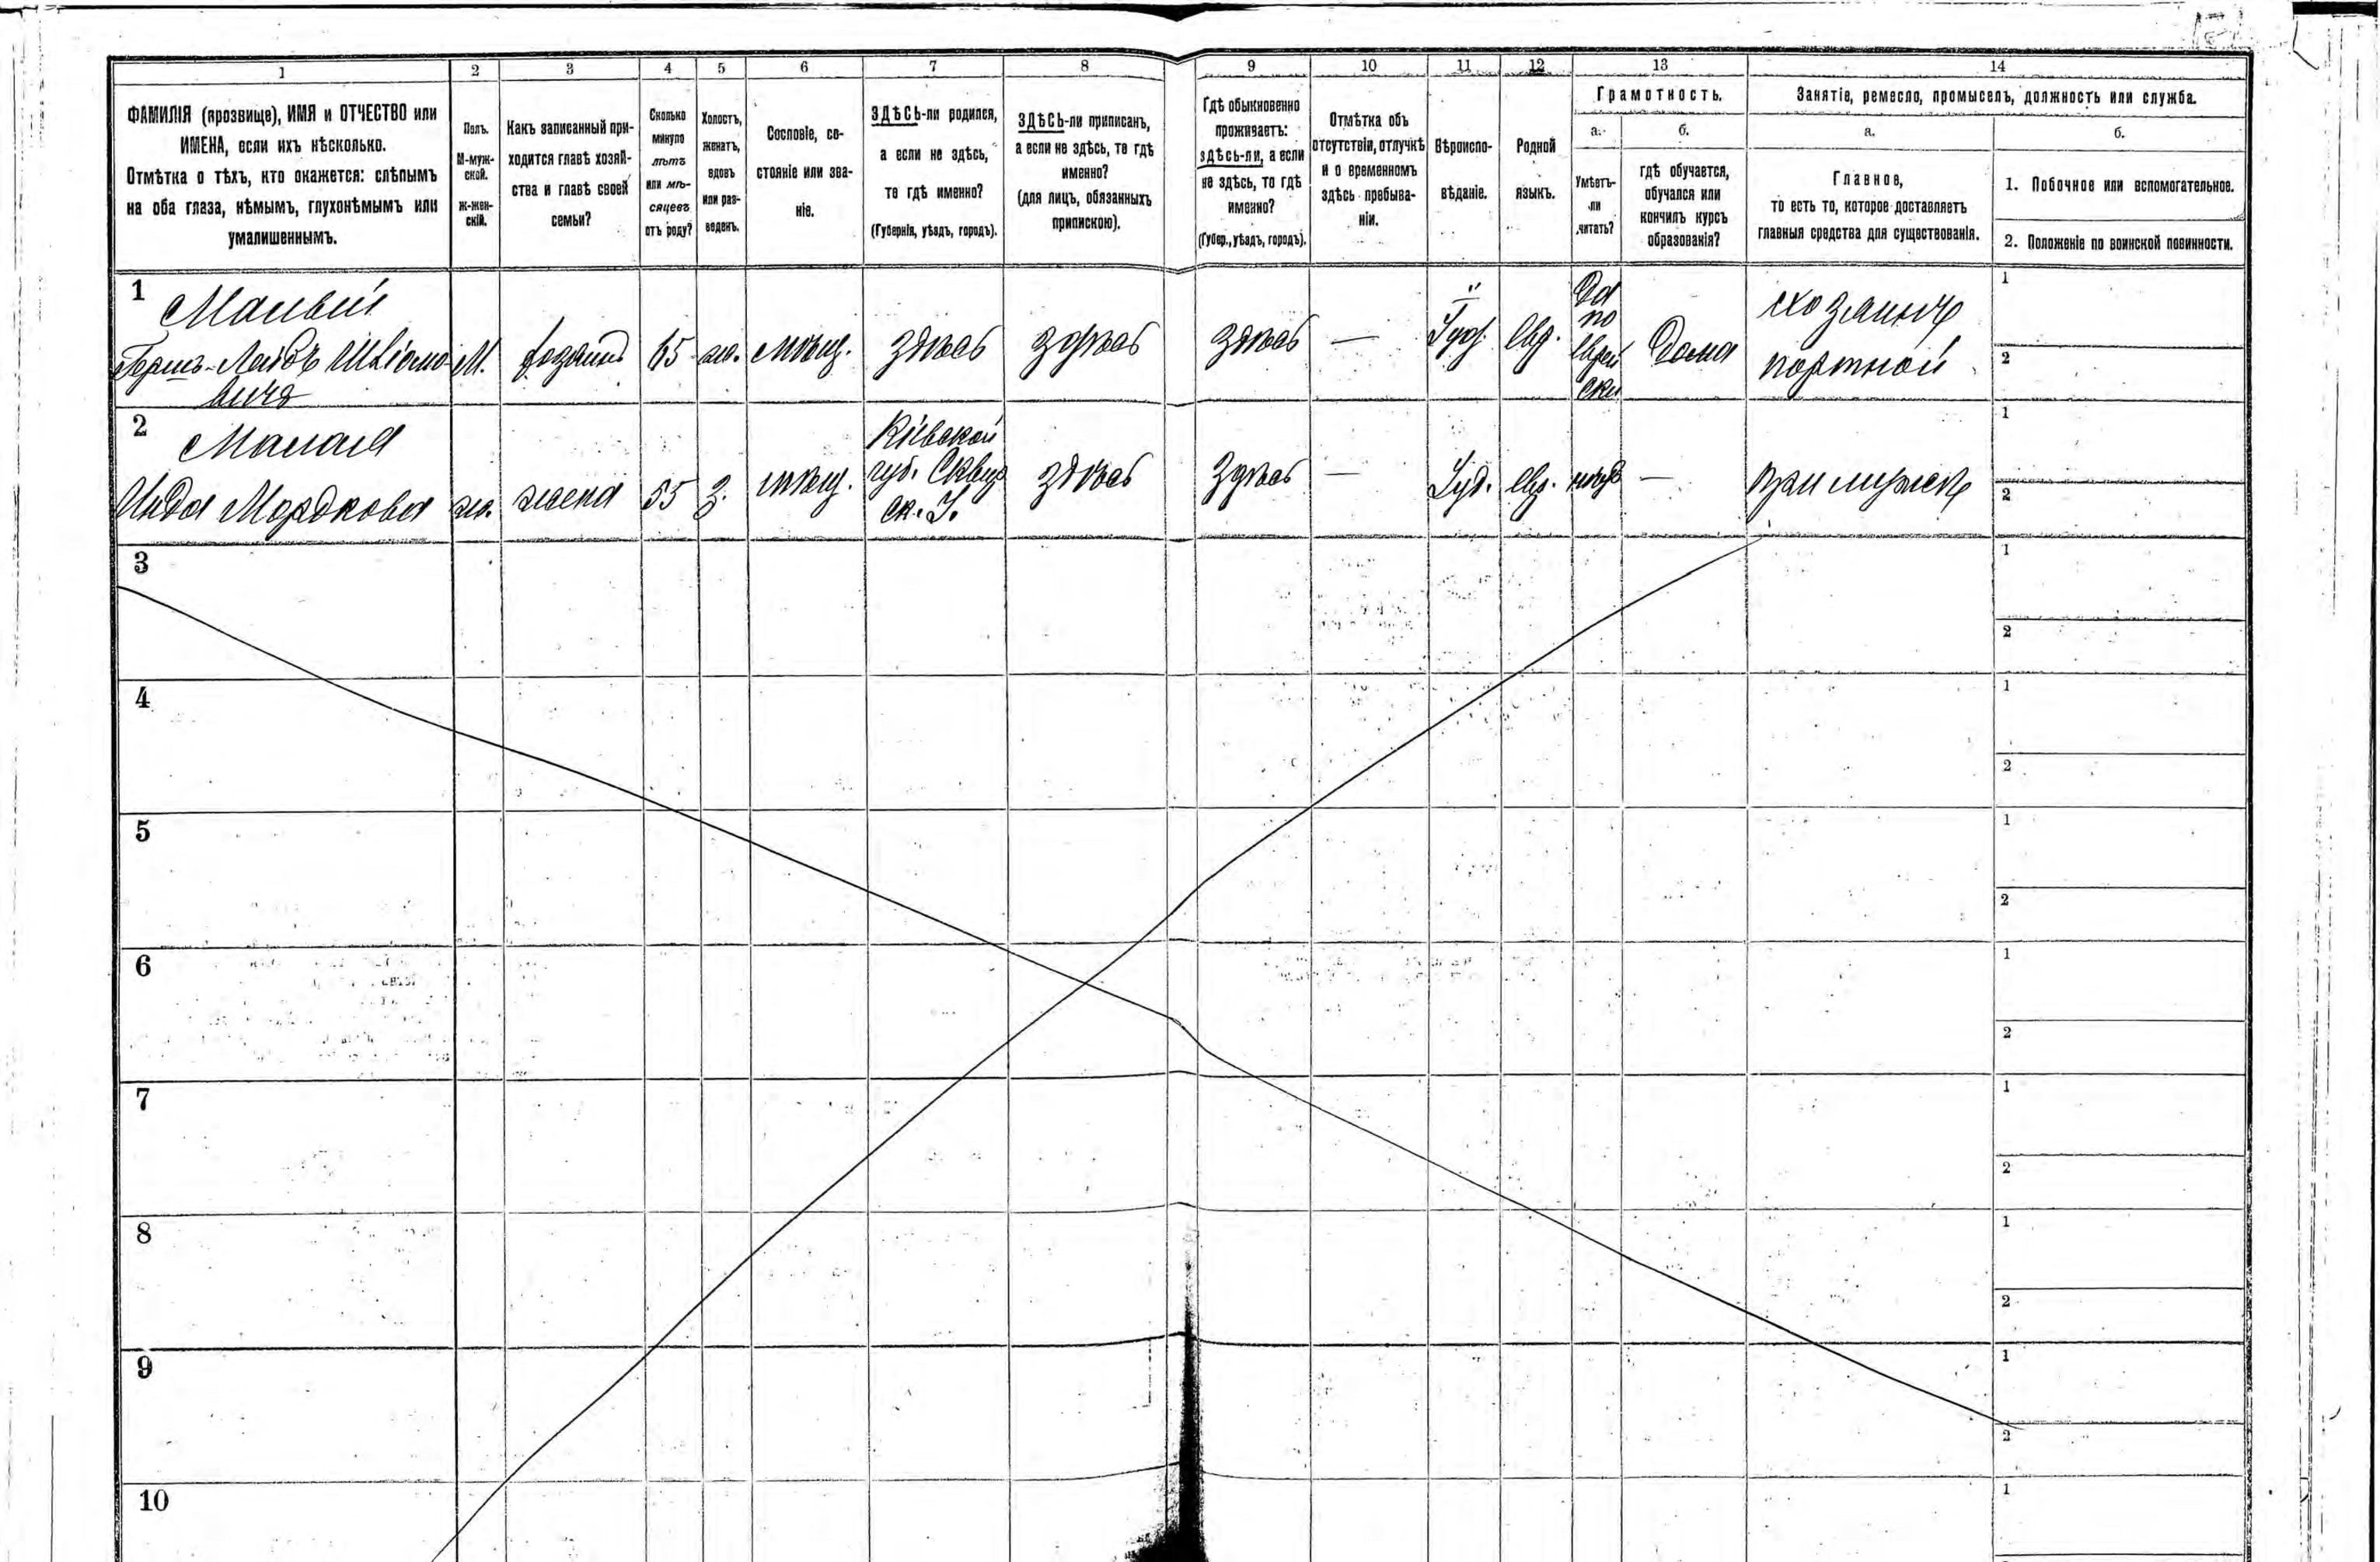 1 2 3 4 5 6 7 8 9 10 11 12 13 14
ФАМИЛІЯ (прозвище), ИМЯ и ОТЧЕСТВО или
ИМЕНА, если ихъ нѣсколько.
Отмѣтка о тѣхъ, кто окажется: слѣпымъ
на оба глаза, нѣмымъ, глухонѣмымъ или
умалишеннымъ.
Полъ.
М-муж-
ской.
ж-жен-
скій.
Какъ записанный при-
ходится главѣ хозяй-
ства и главѣ своей
семьи?
Сколько
минуло
лѣтъ
или мѣ-
сяцевъ
отъ роду?
Холостъ,
женатъ,
вдовъ
или раз-
веденъ.
Сословіе, со-
стояніе или зва-
ніе.
ЗДѢСЬ-ли родился,
а если не здѣсь,
то гдѣ именно?
(Губернія, уѣздъ, городъ).
ЗДѢСЬ-ли приписанъ,
а если не здѣсь, то гдѣ
именно?
(для лицъ, обязанныхъ
припискою).
Гдѣ обыкновенно
проживаетъ:
здѣсь-ли, а если
не здѣсь, то гдѣ
именно?
(Губер., уѣздъ, городъ).
Отмѣтка объ
отсутствіи, отлучкѣ
и о временномъ
здѣсь пребыва-
ніи.
Вѣроиспо-
вѣданіе.
Родной
языкъ.
Грамотность.
а.
Умѣетъ-
ли
читать?
б.
гдѣ обучается,
обучался или
кончилъ курсъ
образованія?
Занятіе, ремесло, промыселъ, должность или служба.
а.
Главное,
то есть то, которое доставляетъ
главныя средства для существованія.
б.
1. Побочное или вспомогательное.
2. Положеніе по воинской повинности.
1
Малый
Герш-Лейбъ
М.
хозяинъ
65
ж.
мѣщ.
здѣсь
здѣсь
здѣсь
—
Іуд.
Евр.
Да
по
Еврей
ски
Дома
хозяинъ
портной
1
2
2
Малая
Мордкова
ж.
жена
55
з.
мѣщ.
Кіевской
губ. Сквир
ск. У.
здѣсь
здѣсь
—
Іуд.
Евр.
нѣтъ
—
при мужѣ
1
2
3
1
2
4
1
2
5
1
2
6
1
2
7
1
2
8
1
2
9
1
2
10
1